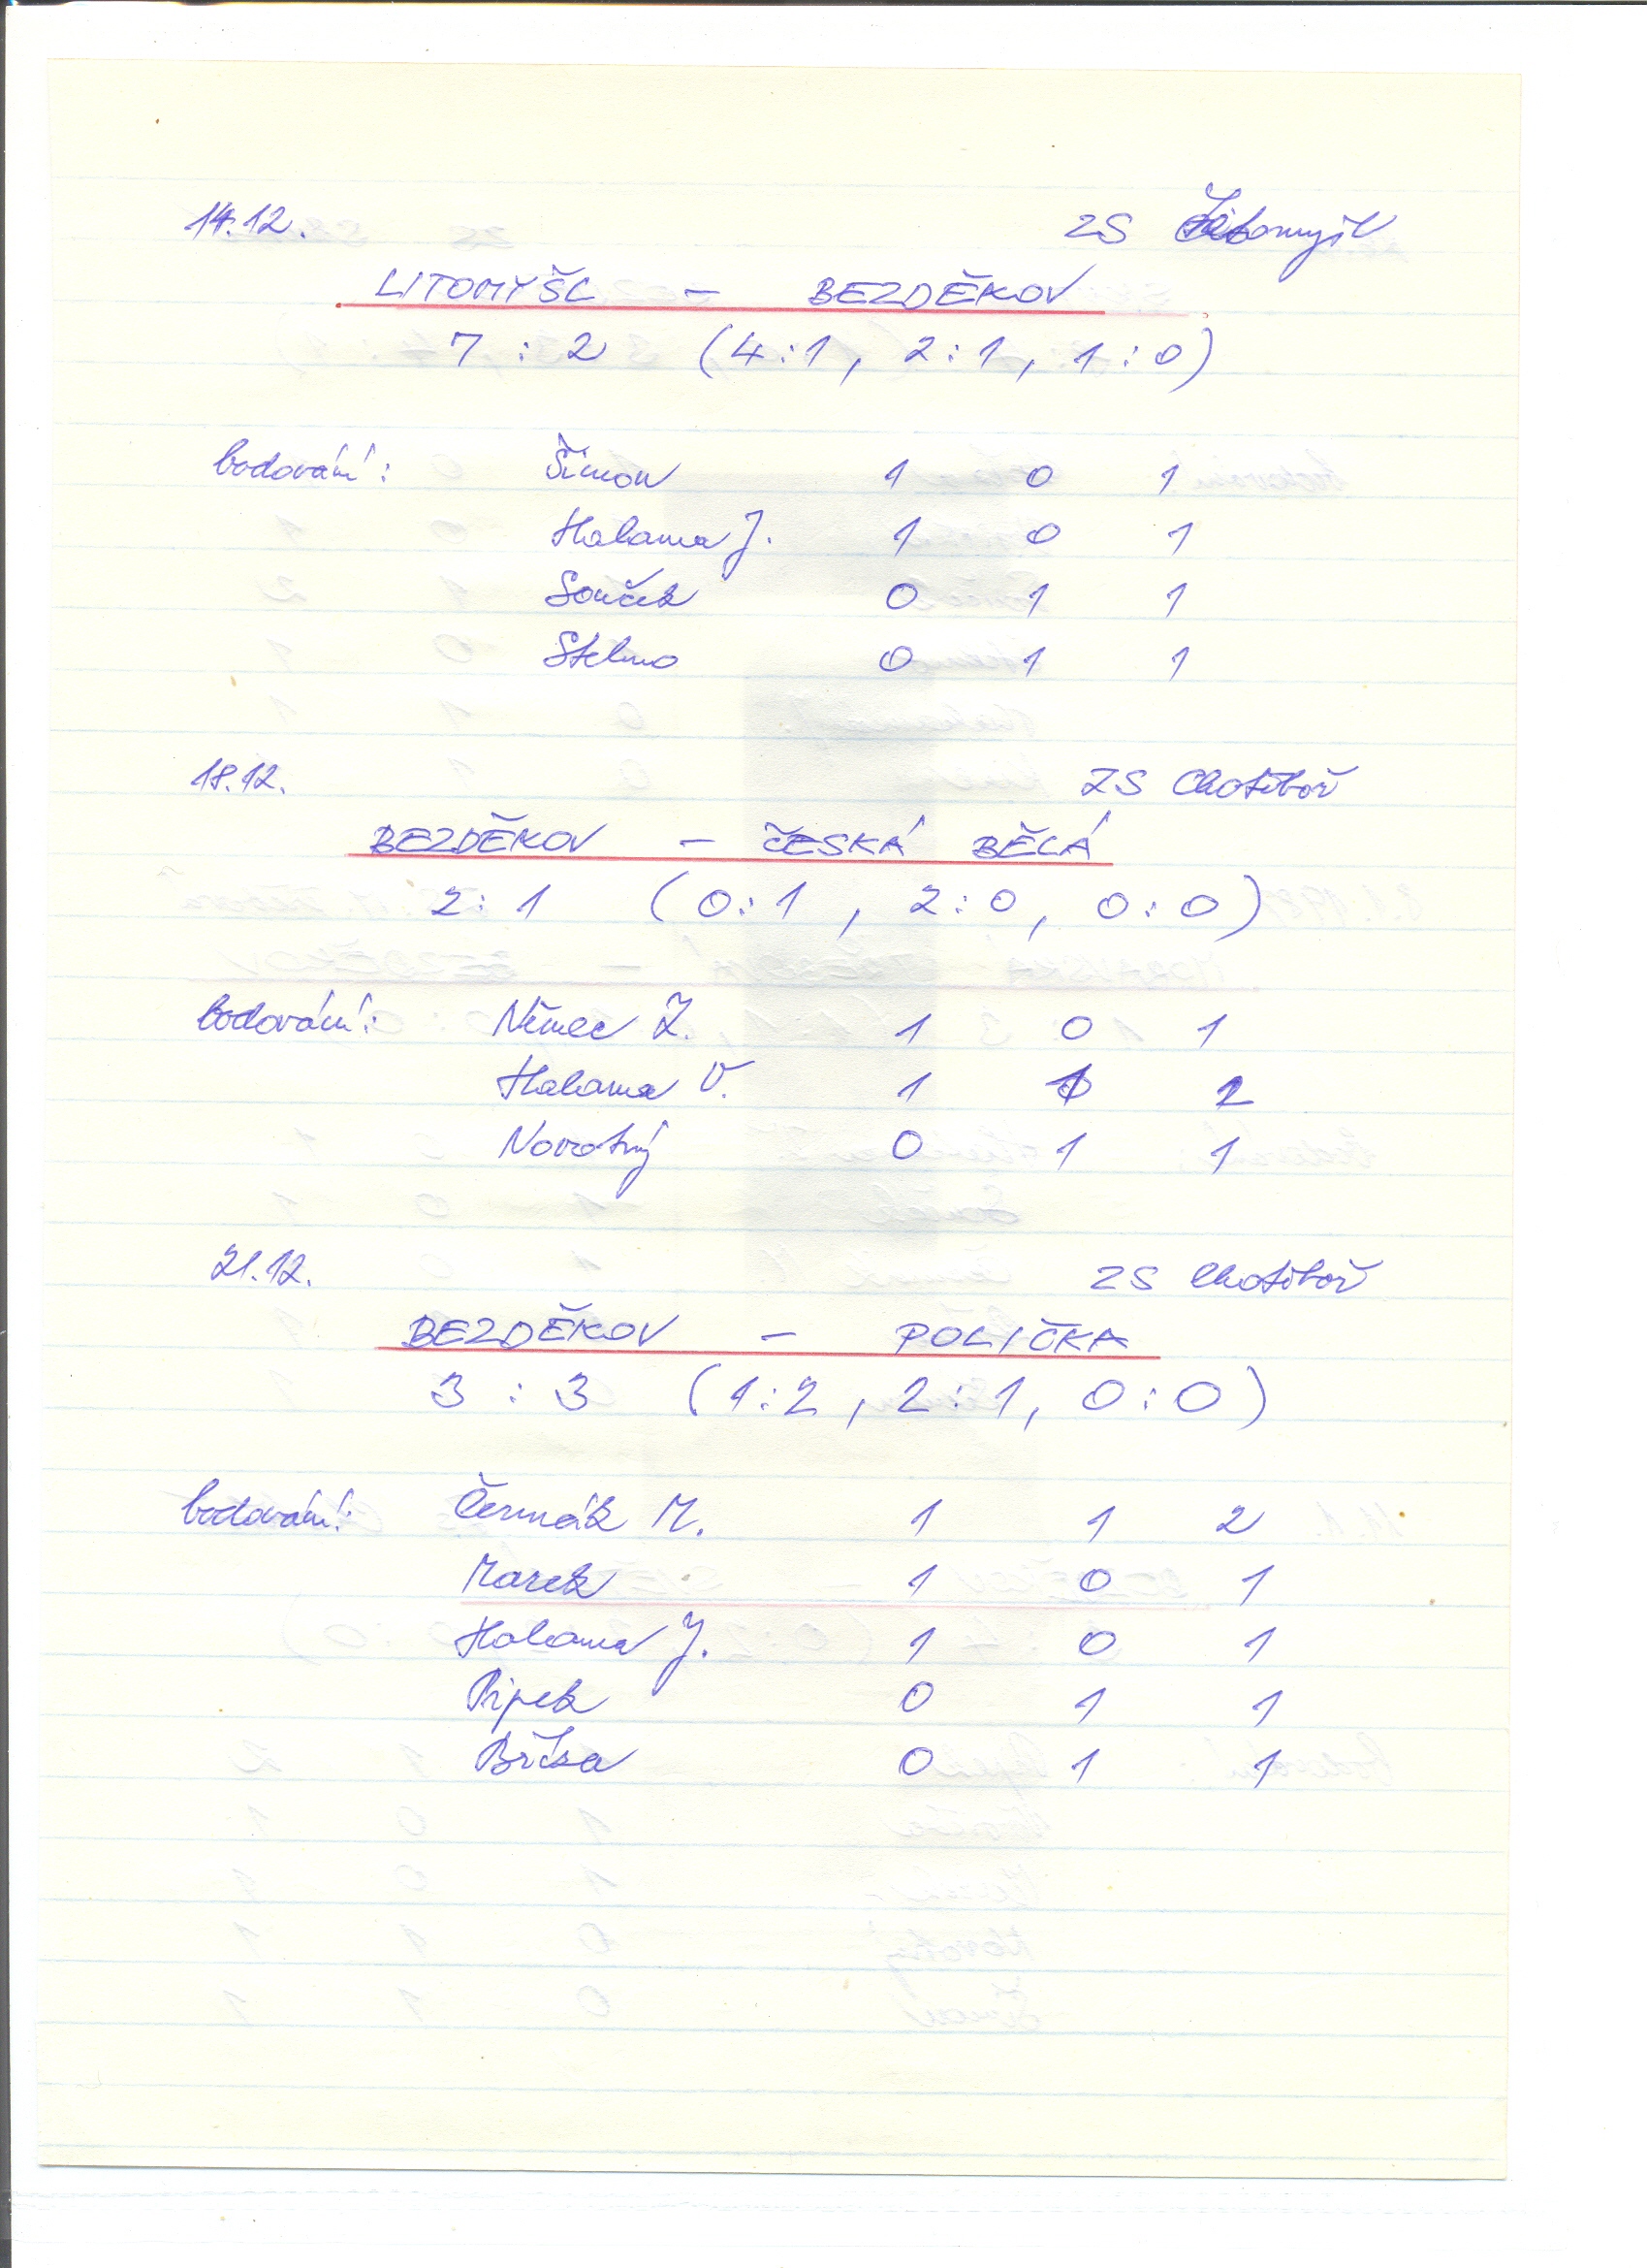 14.12. ZS Litomyšl
LITOMYŠL - BEZDĚKOV
7 : 2 (4:1, 2:1, 1:0)
bodování: Šimon 1 0 1
Halama J. 1 0 1
Souček 0 1 1
Stehno 0 1 1
18.12. ZS Chotěboř
BEZDĚKOV - ČESKÁ BĚLÁ
2:1 (0:1, 2:0, 0:0)
bodování: Němec Z. 1 0 1
Halama V. 1 1 2
Novotný 0 1 1
21.12. ZS Chotěboř
BEZDĚKOV - POLIČKA
3 : 3 (1:2, 2:1, 0:0)
bodování: Čermák M. 1 1 2
Marek 1 0 1
Halama J. 1 0 1
Pipek 0 1 1
Bříza 0 1 1